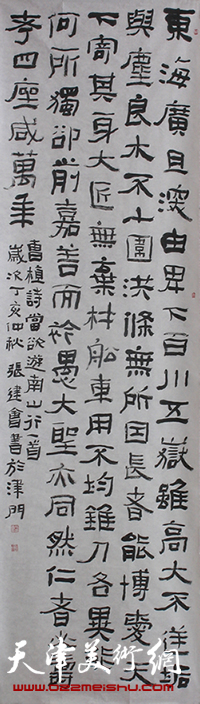 東海廣且深由卑下百川五嶽雖高大不逆垢
與塵良木不十圍洪條無所因長者能博愛天
下寄其身大匠無棄材船車用不均錐刀各異能
何所獨卻前嘉善而矜愚大聖亦同然仁者各壽
考四座咸萬年
曹植詩當欲遊南山行一首
歲次丁亥仲秋張建會書於津門
天津美術網
www.022meishu.com